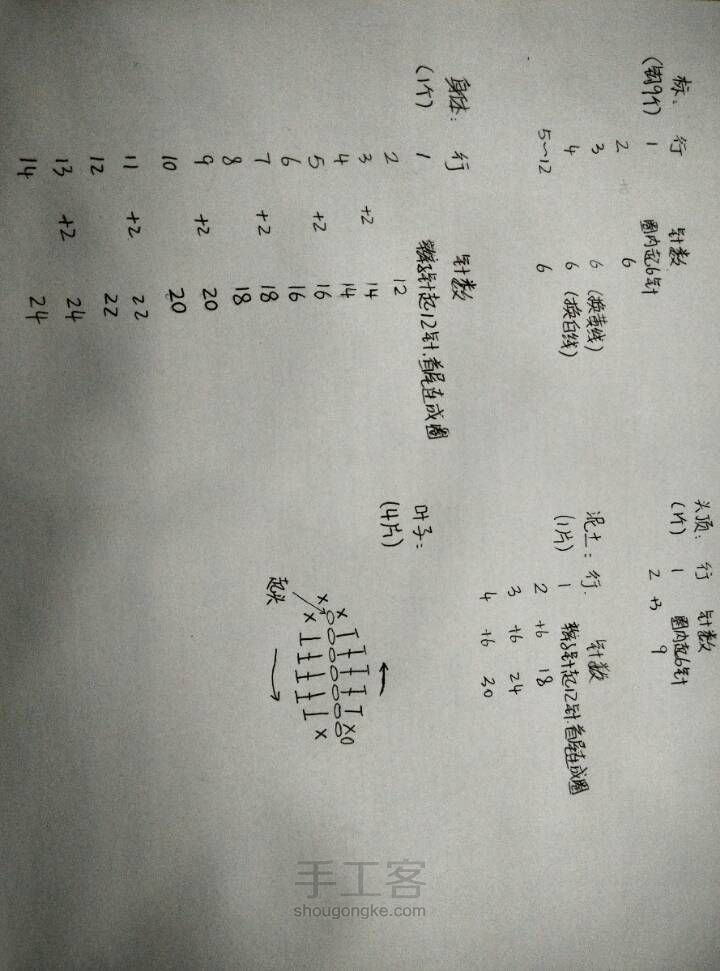 标： 行 针数
(钩9个) 1 圈内起6针
2 6
3 6 (换黄线)
4 6 (换白线)
5~12 6
身体： 行 针数
(1个) 1 辫子针起12针.首尾连成圈
2 12
3 +2 14
4 14
5 +2 16
6 16
7 +2 18
8 18
9 +2 20
10 20
11 +2 22
12 22
13 +2 24
14 24
头顶： 行 针数
(1个) 1 圈内起6针
2 +3 9
泥土： 行. 针数
(1片) 1 辫子针起12针.首尾连成圈
2 +6 18
3 +6 24
4 +6 30
叶子：
(4片)
起头
手工客
shougongke.com